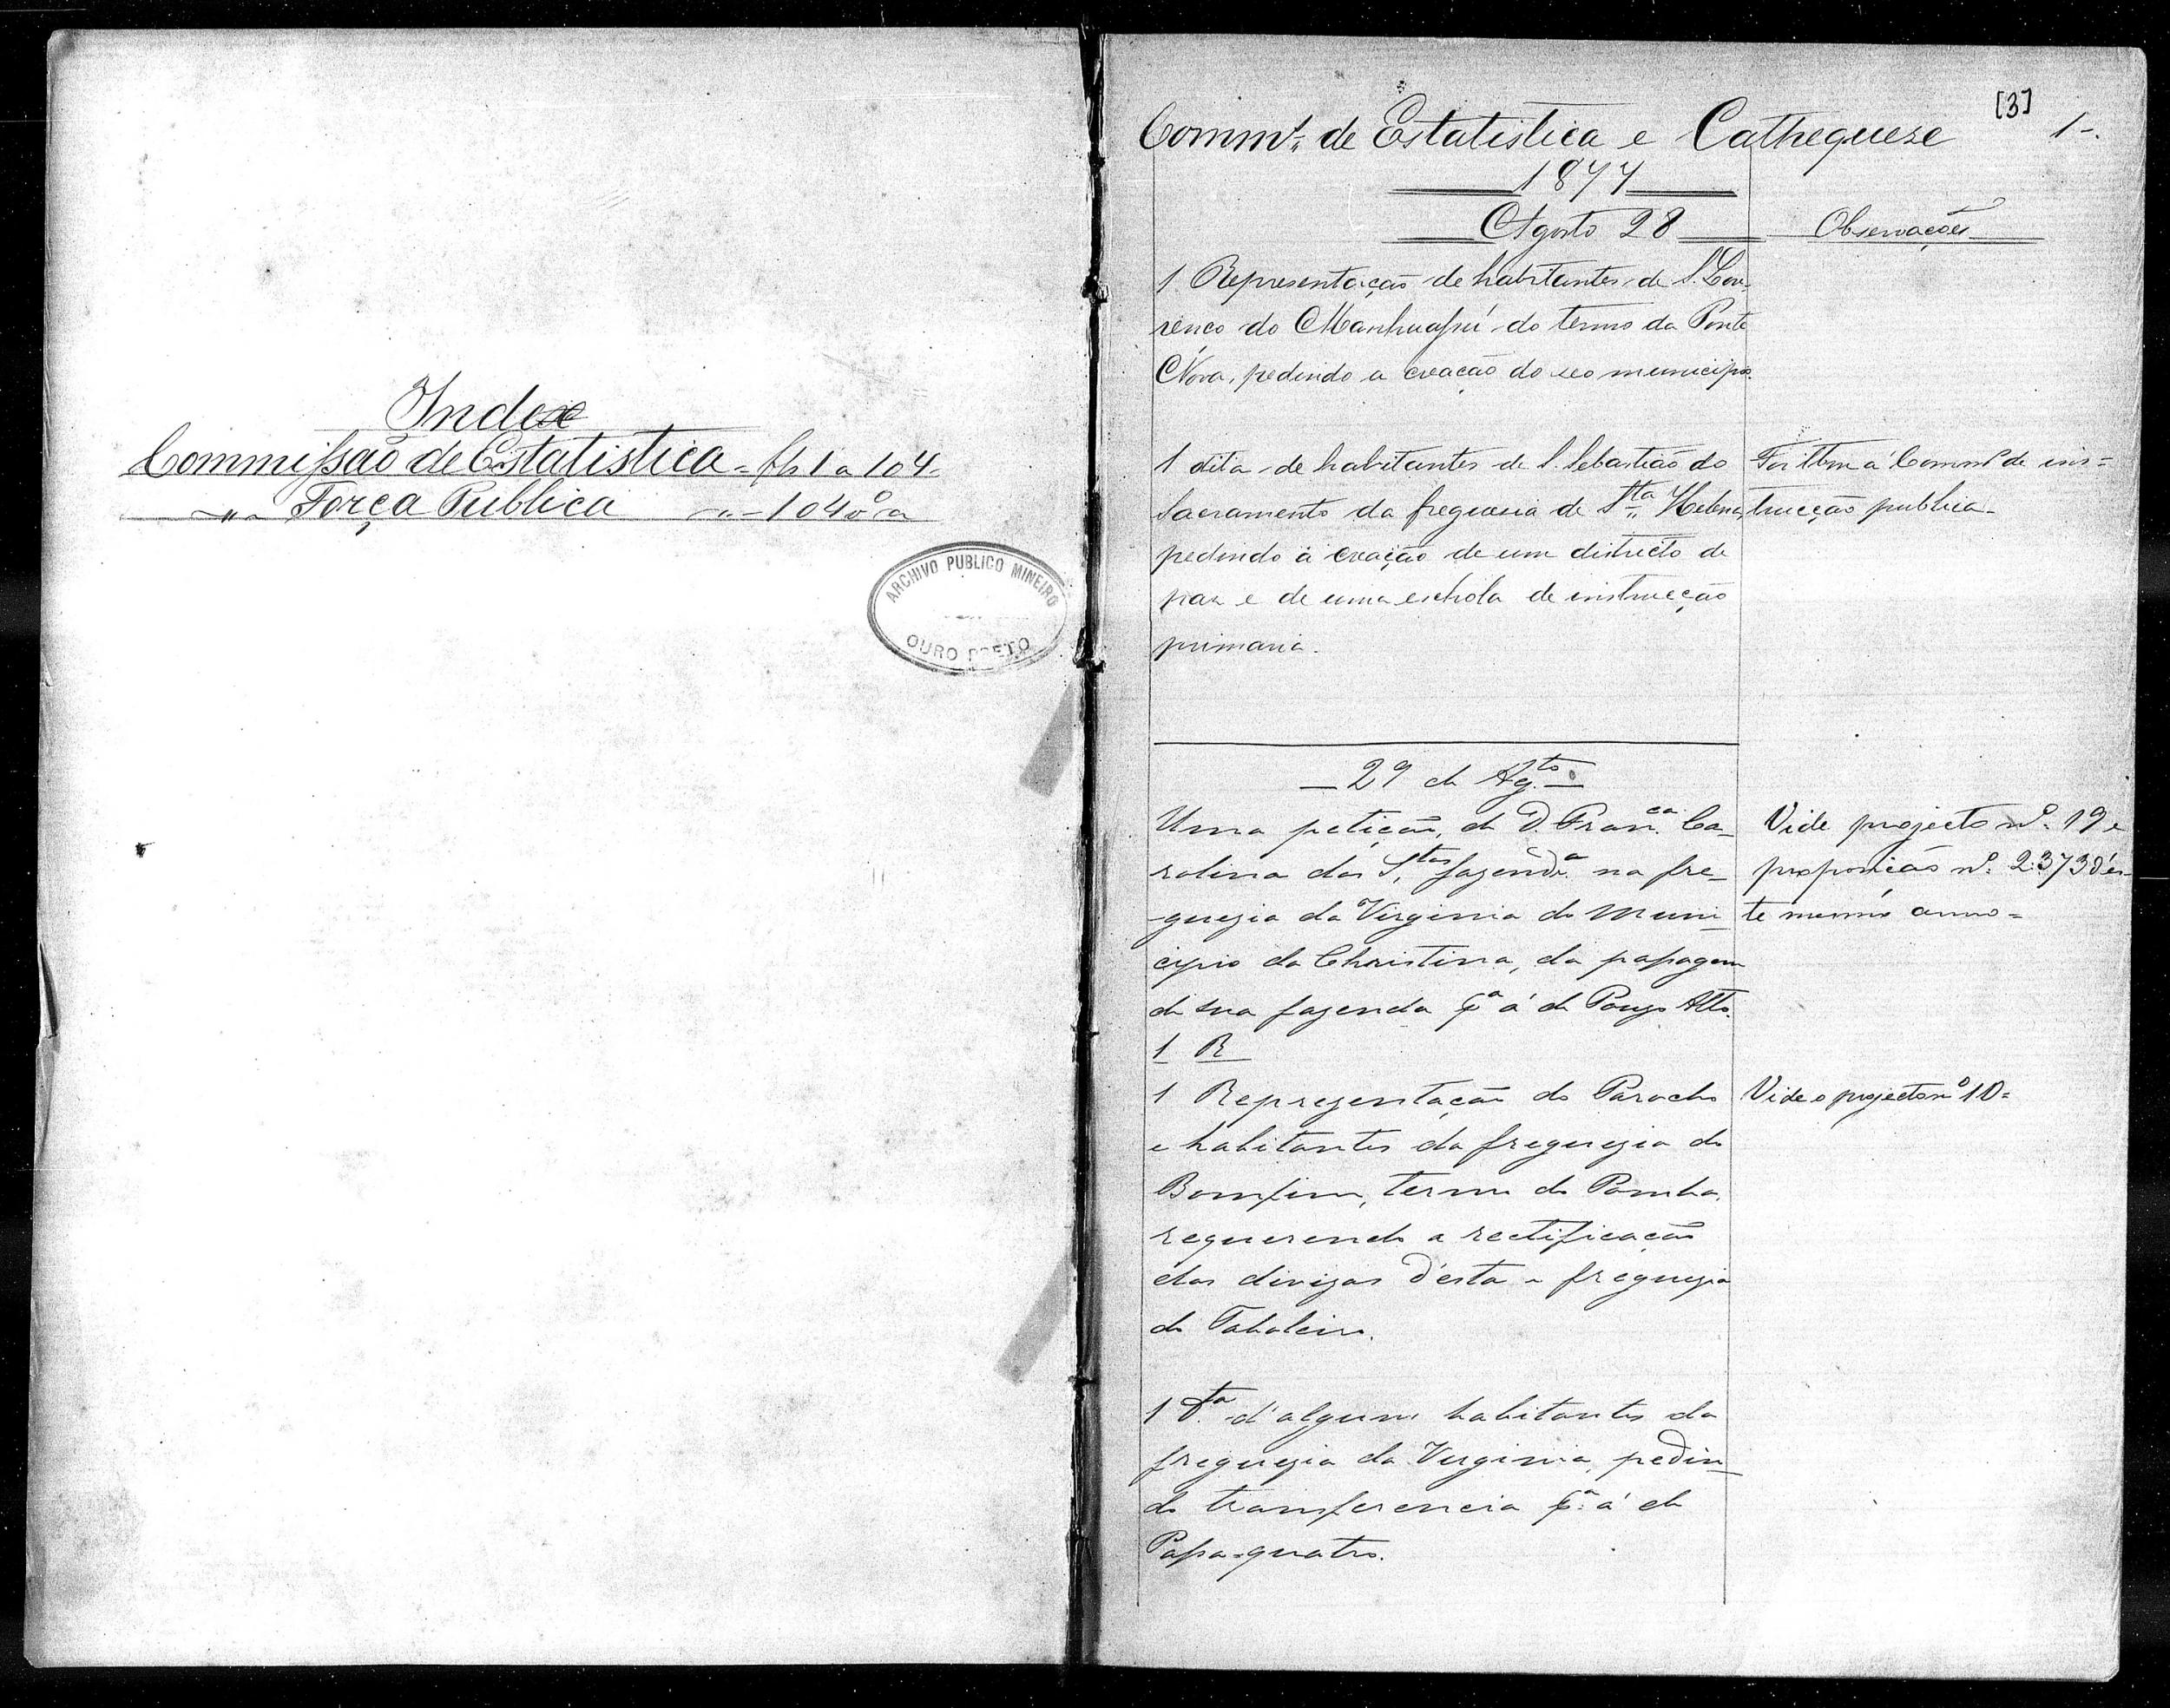 Index
Commissão de Estatistica - fls 1 a 104
" Força Publica " - 104 v a
ARCHIVO PUBLICO MINEIRO
OURO PRETO
[3] 1-.
Comm. de Estatistica e Cathequese
1877
Agosto 28
Observações
1 Representação de habitantes de S. Lou-
renço do Manhuassú do termo da Ponte
Nova, pedindo a creação do seo municipio.
1 dita de habitantes de S. Sebastião do
Sacramento da freguesia de Sta. Helena,
pedindo a creação de um districto de
paz e de uma eschola de instrucção
primaria.
Foi tbem á Comm. de ins=
trucção publica-
29 de Ag.to
Uma petição, de D. Fran.ca Ca-
rolina dos S.tos fazend.a na fre-
guezia da Virginia do Muni-
cipio da Christina, da passagem
de sua fazenda p.a á de Pouso Alto.
Vide projecto nº. 19 e
proposição nº. 2373 d'es-
te mesmo anno=
1 R
1 Representação do Parocho
e habitantes da freguezia do
Bomfim, termo do Pomba,
requerendo a rectificação
das divizas d'esta e freguezia
do Taboleiro.
Vide o projecto nº 10=
1 D.ta d'alguns habitantes da
freguezia da Virginia, pedin-
do transferencia p.a á de
Passa-quatro.